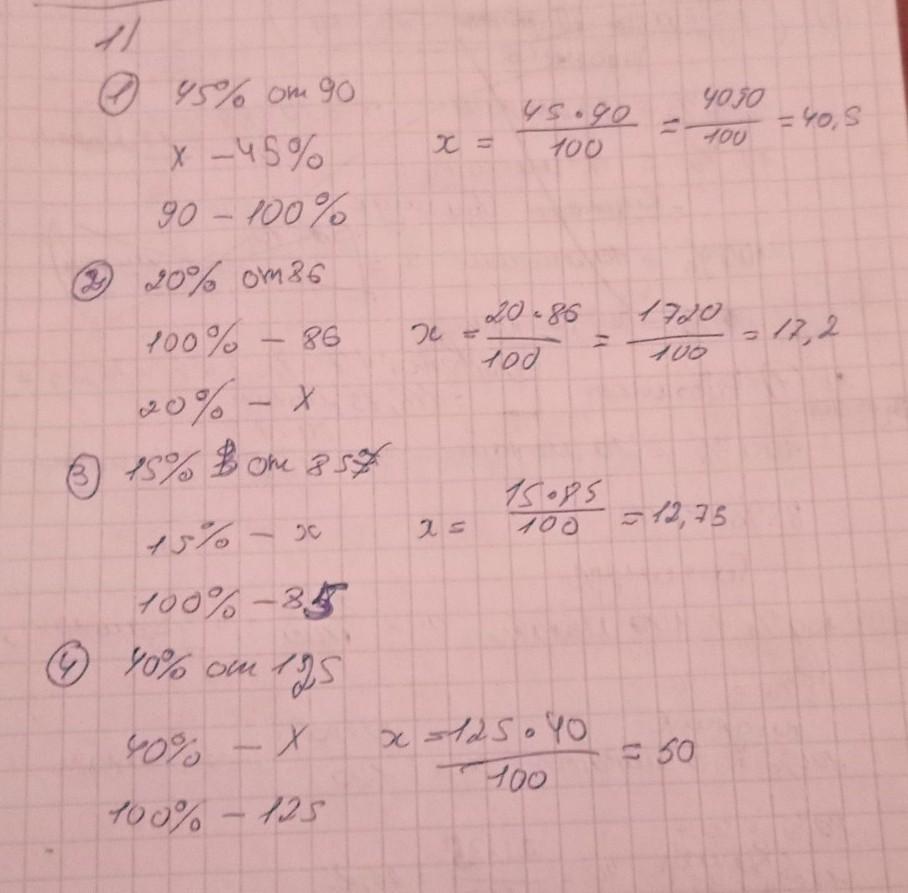 1)
① 45% от 90
x = 45·90/100 = 4050/100 = 40,5
x – 45%
90 – 100%
② 20% от 86
100% – 86
x = 20·86/100 = 1720/100 = 17,2
20% – x
③ 15% от 85
15% – x
x = 15·85/100 = 12,75
100% – 85
④ 40% от 125
40% – x
x = 125·40/100 = 50
100% – 125